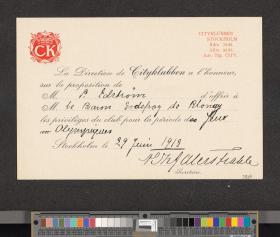 CK
CITYKLUBBEN
STOCKHOLM
La Direction de Cityklubben a l'honneur,
sur la proposition de
M. S. Edström d'offrir à
M. le Baron Godefroy de Blonay
les privilèges du club pour la période des Jeux
Olympiques
Stockholm le 29 Juin 1912